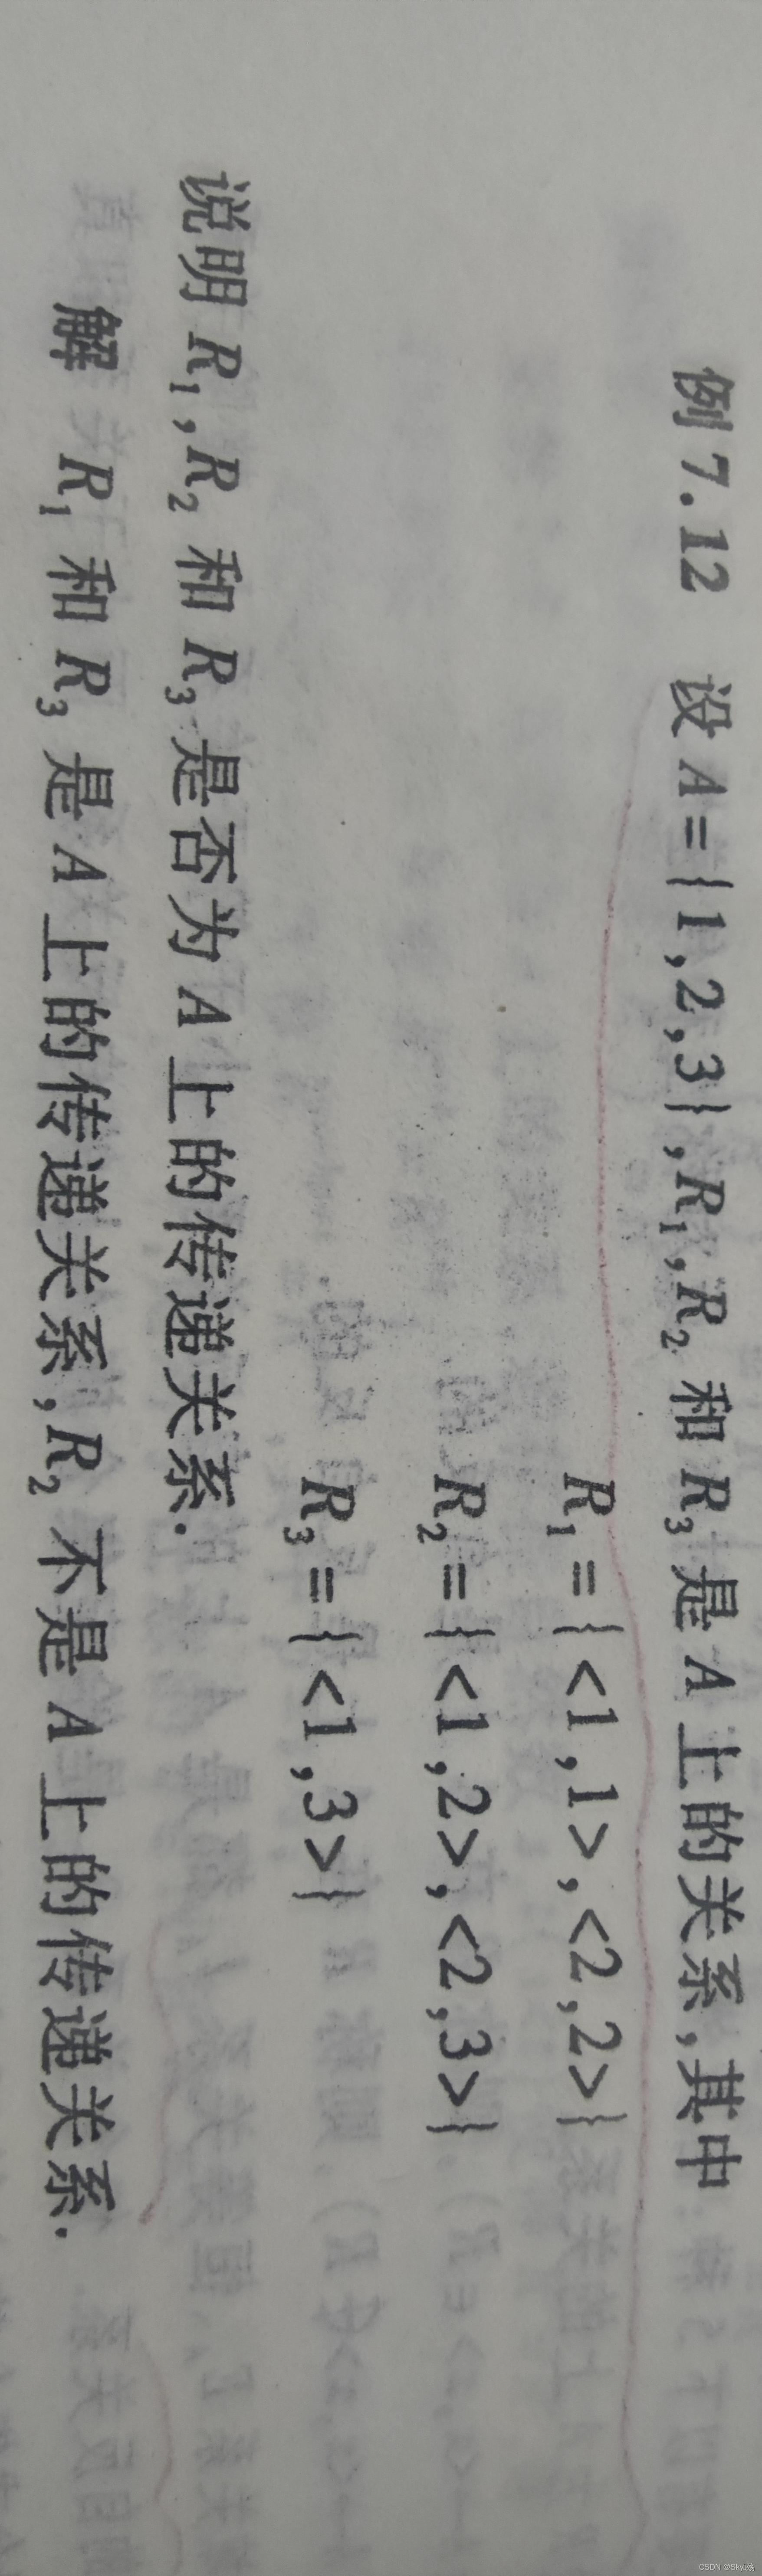 例 7.12 设 A={1,2,3},R₁,R₂ 和 R₃ 是 A 上的关系,其中
R₁={<1,1>,<2,2>}
R₂={<1,2>,<2,3>}
R₃={<1,3>}
说明 R₁,R₂ 和 R₃ 是否为 A 上的传递关系.
解 R₁ 和 R₃ 是 A 上的传递关系,R₂ 不是 A 上的传递关系.